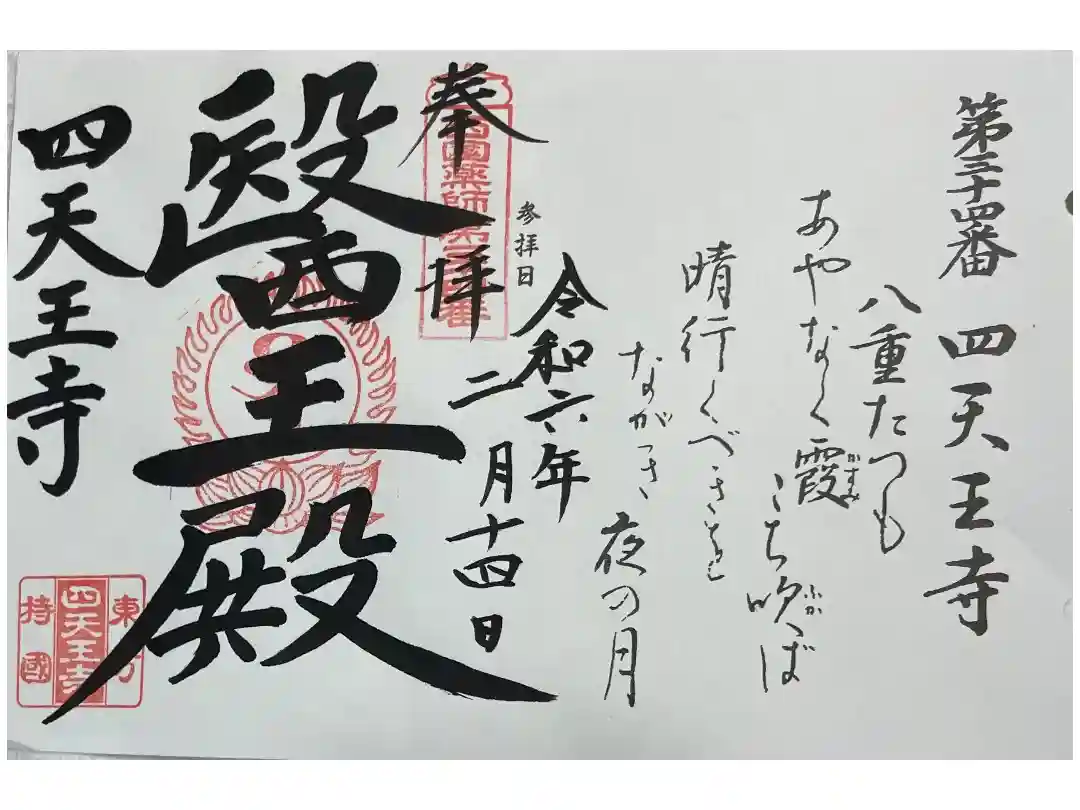 第三十四番 四天王寺
八重たつも
あやなく霞
かすみ
こち吹ば
ふか
晴行くべきを
ながき 夜の月
参拝日
令和六年
二月十四日
奉拝
西國薬師第 番
醫王殿
四天王寺
東方
四天王寺
持國